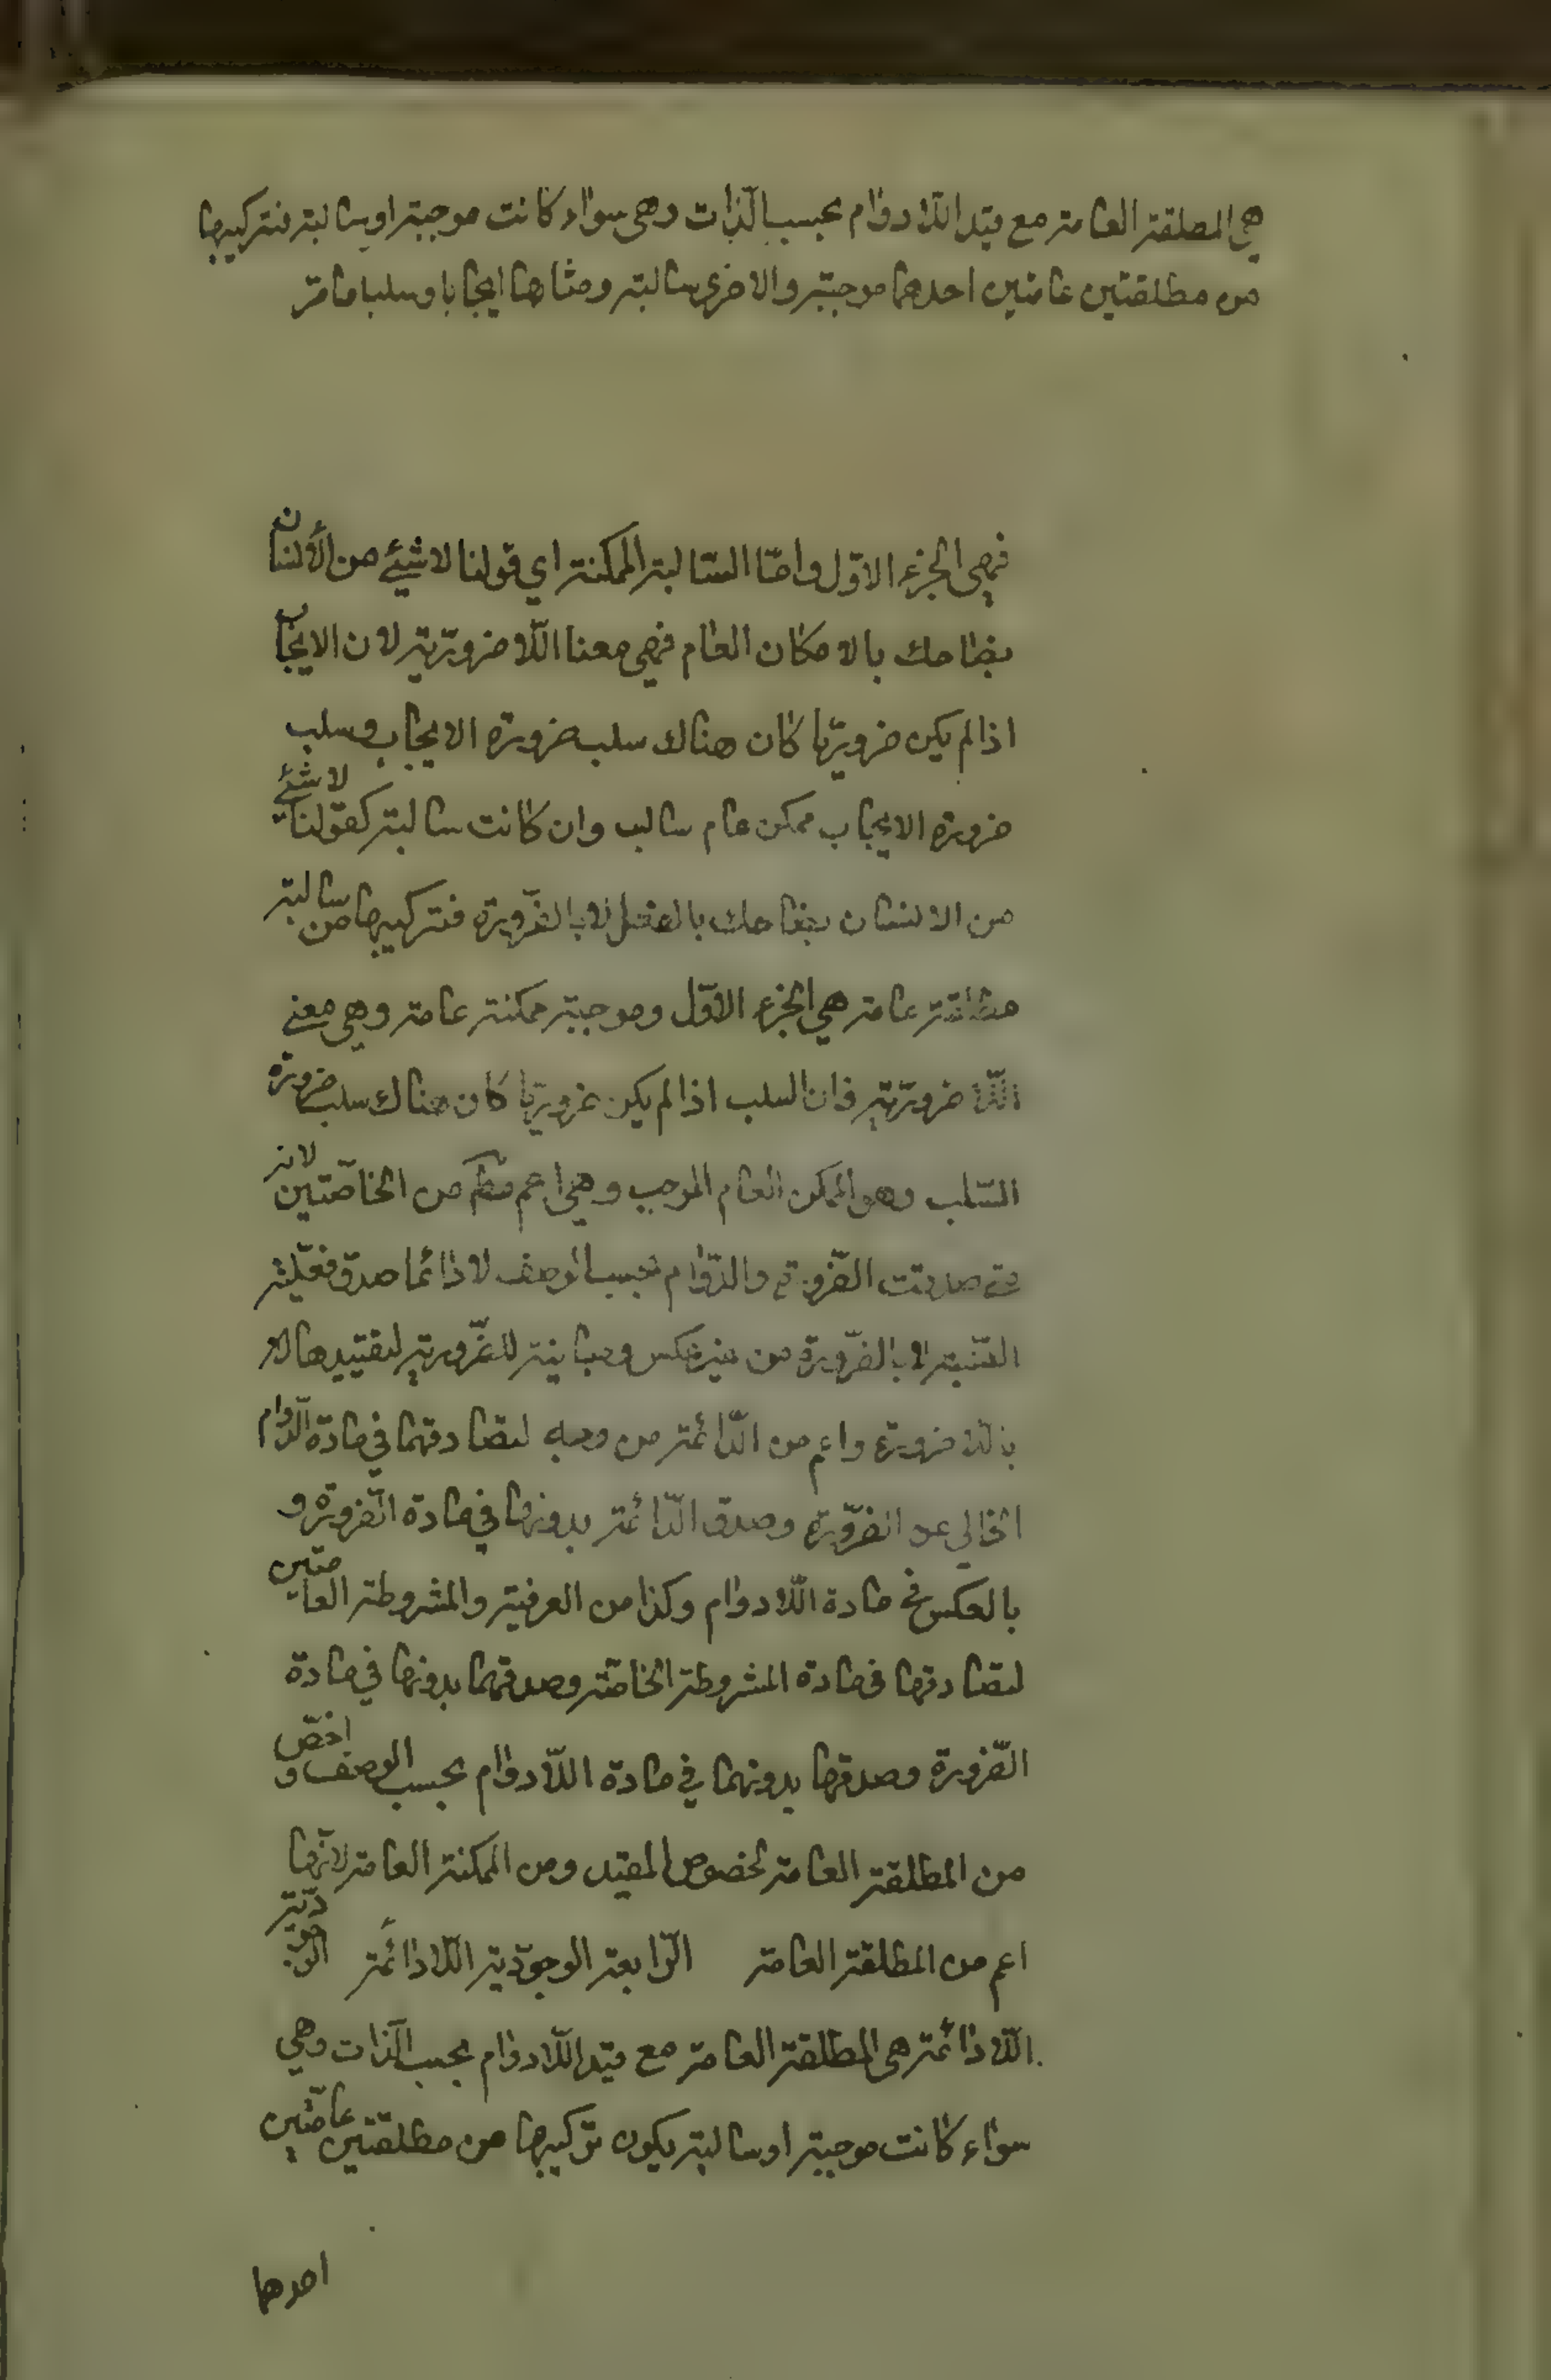 هي المطلقة العامة مع قيد اللادوام بحسب الذات وهي سواء كانت موجبة او سالبة فتركيبها
من مطلقتين عامتين احدهما موجبة والاخرى سالبة ومثالها ايجابا وسلبا ما مر
فهي الجزء الاوّل وامّا السّالبة الممكنة اي قولنا لا شيئ من الأنسان
بضاحك بالامكان العام فهي معنا اللّا ضروريّة لان الايجاب
اذا لم يكن ضروريّا كان هناك سلب ضرورة الايجاب وسلب
ضرورة الايجاب ممكن عام سالب وان كانت سالبة كقولنا لا شيئ
من الانسان بضاحك بالفعل لا بالضّرورة فتركيبها من سالبة
مطلقة عامة هي الجزء الاوّل وموجبة ممكنة عامة وهي معنى
اللّا ضروريّة فان السلب اذا لم يكن ضروريّا كان هناك سلب ضرورة
السّلب وهو الممكن العام الموجب وهي اعم مط من الخاصّتين لانه
متى صدقت الضّرورة والدّوام بحسب الوصف لا دائما صدق فعليّة
النّسبة لا بالضّرورة من غير عكس ومباينة للضّروريّة لتقييدها
باللا ضرورة واعم من الدّائمة من وجه لتصادقهما في مادة الدّوام
الخالي عن الضّرورة وصدق الدّائمة بدونها في مادة الضّرورة و
بالعكس في مادة اللّا دوام وكذا من العرفية والمشروطة العامتين
لتصادقها في مادة المشروطة الخاصّة وصدقهما بدونها في مادة
الضّرورة وصدقها بدونهما في مادة اللّا دوام بحسب الوصف و اخصّ
من المطلقة العامة لخصوص المقيد ومن الممكنة العامة لانّها
اعم من المطلقة العامة الرّابعة الوجوديّة اللّا دائمة الوجوديّة
اللّا دائمة هي المطلقة العامة مع قيد اللّا دوام بحسب الذّات وهي
سواء كانت موجبة او سالبة يكون تركيبها من مطلقتين عامّتين
احدهما